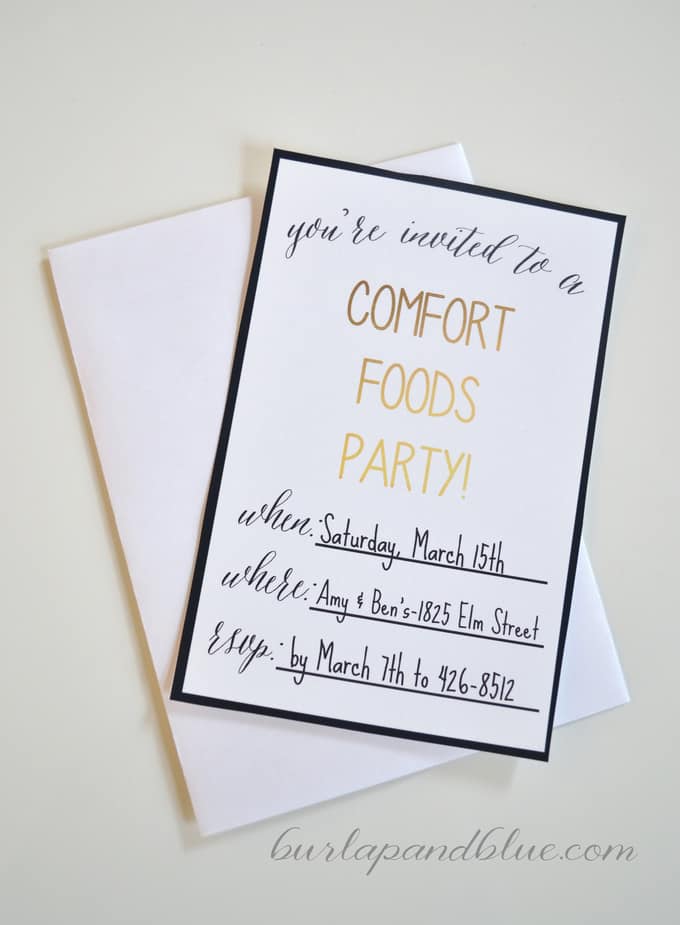 you're invited to a
COMFORT
FOODS
PARTY!
when: Saturday, March 15th
where: Amy & Ben's-1825 Elm Street
rsvp: by March 7th to 426-8512
burlapandblue.com